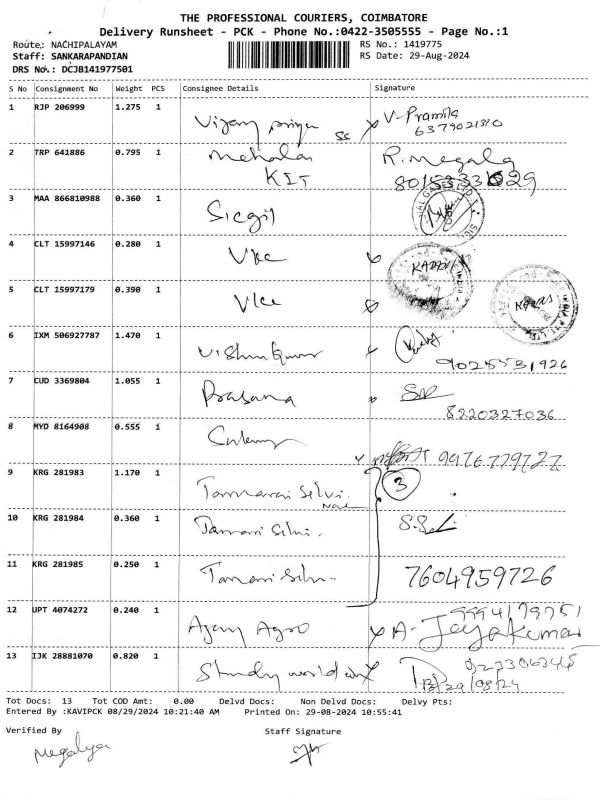 THE PROFESSIONAL COURIERS, COIMBATORE
Delivery Runsheet - PCK - Phone No.:0422-3505555 - Page No.:1
Route: NACHIPALAYAM RS No.: 1419775
Staff: SANKARAPANDIAN RS Date: 29-Aug-2024
DRS No.: DCJB141977501
S No Consignment No Weight PCS Consignee Details Signature
1 RJP 206999 1.275 1 Vijay priya ss V-Pramila
6379021310
2 TRP 641886 0.795 1 R.Megala
KIT
3 MAA 866810988 0.360 1 Sicgil
4 CLT 15997146 0.280 1 Vkc
5 CLT 15997179 0.390 1 Vkc
6 IXM 506927787 1.470 1 Vishnu Kumar
9025531926
7 CUD 3369804 1.055 1 Prasana
8220327036
8 MYD 8164908 0.555 1
9976779727
9 KRG 281983 1.170 1 Tamarai Selvi 3
10 KRG 281984 0.360 1 Tamarai Selvi
11 KRG 281985 0.250 1 Tamarai Selvi 7604959726
12 UPT 4074272 0.240 1 Ajay Agro A-Jeyakumar
13 IJK 28881070 0.820 1 29/08/24
Tot Docs: 13 Tot COD Amt: 0.00 Delvd Docs: Non Delvd Docs: Delvy Pts:
Entered By :KAVIPCK 08/29/2024 10:21:40 AM Printed On: 29-08-2024 10:55:41
Verified By Staff Signature
Megalya